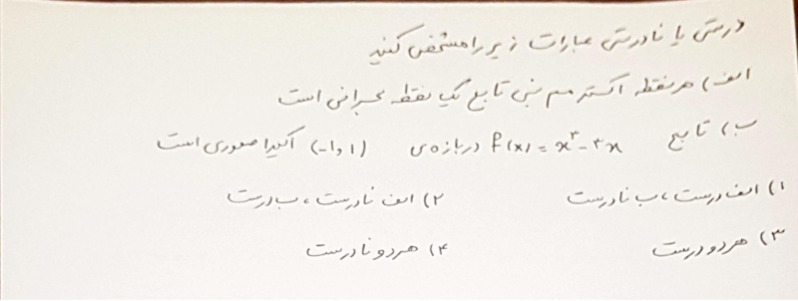 درستی یا نادرستی عبارات زیر را مشخص کنید
الف) هر نقطه اکسترمم نسبی تابع یک نقطه بحرانی است
ب) تابع f(x) = x³ - ۳x در بازه‌ی (-۱و۱) اکیدا صعودی است
۱) الف درست، ب نادرست ۲) الف نادرست، ب درست
۳) هر دو درست ۴) هر دو نادرست